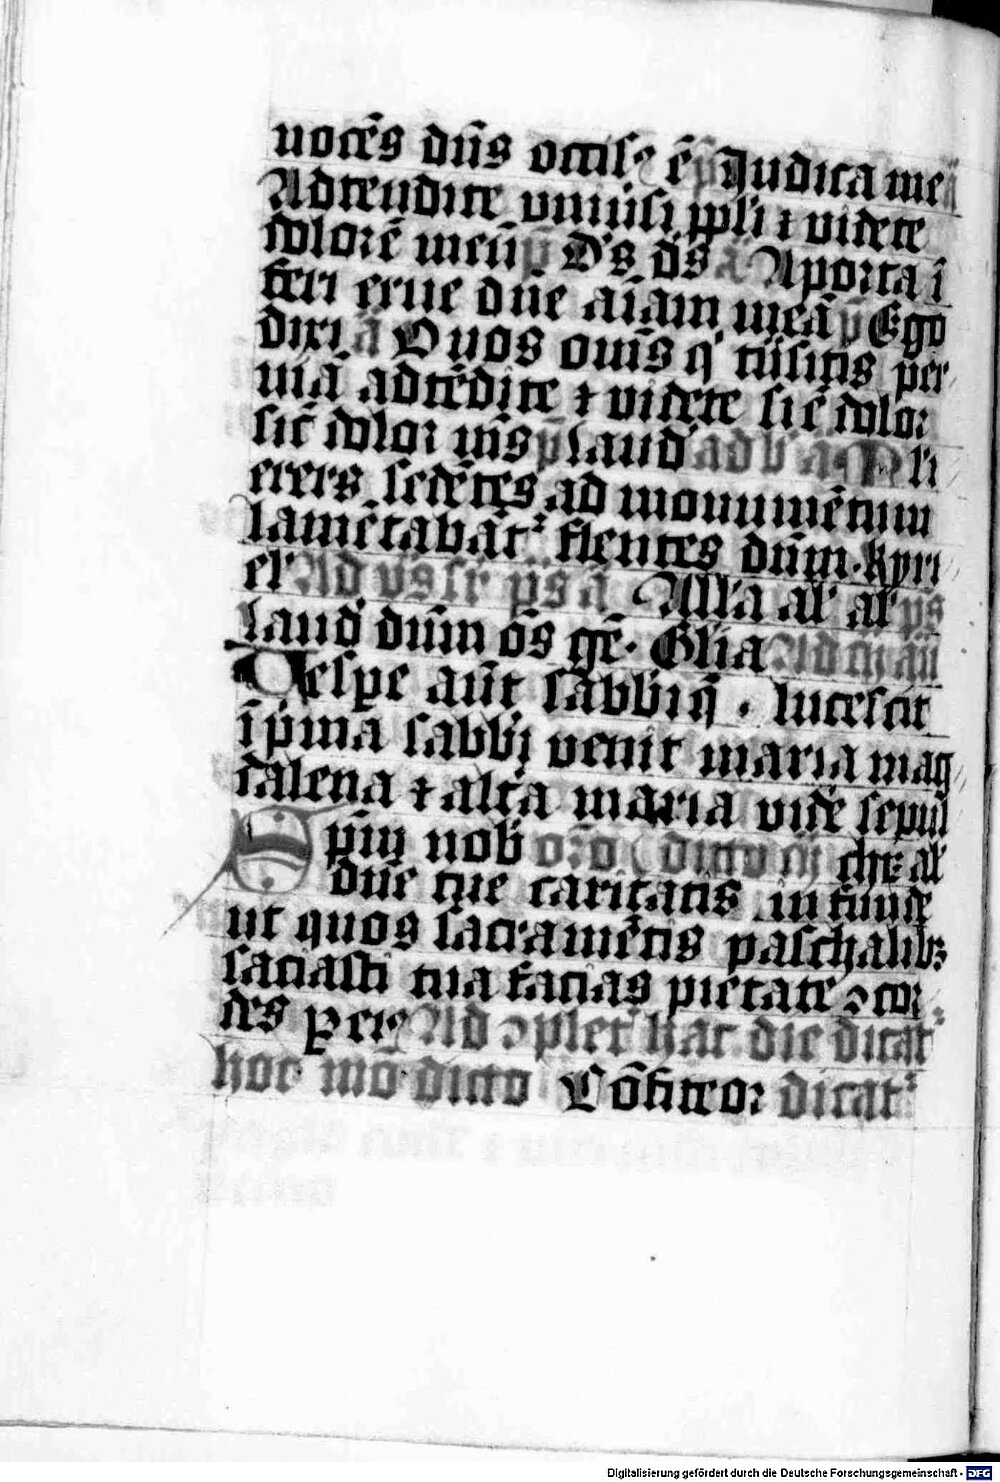 nocēs dn̄s occisꝰ ē Judica me
Adtendite vniu̓si ppl̓i ⁊ videte
dolorē meū p Ds ds a A porta ī
feri erue dn̄e aīam meā p Ego
dixi a O vos om̄s q̓ tn̄sitis per
uiā adtēdite ⁊ videte si ē dolor
sic̄ dolor m̄s p laud ad b̓ a M li
eres sedētes ad monumētum
lamētabāt̓ flentes dūm · kyri
el̓ Ad vs̄ sr̓ ps a Alla al̓ al̓ ps
laud dūm ōs gē · Gl̓ia Ad m̄ an̄
Vespe aūt sabbi q̄ · lucescit
ī pma sabbi venit maria mag
dalena ⁊ alta maria vide sepul
Spm nob̓ oro dicto chr̄ al̓
dn̄e tue caritatis infunde
ut quos sacramētis paschalibꝫ
saciasti tua facias pietate ↄcor
des Per Ad ↄplet̓ hac die dicat̓
hoc mō dicto Cōfiteor dicat̓
Digitalisierung gefördert durch die Deutsche Forschungsgemeinschaft - DFG